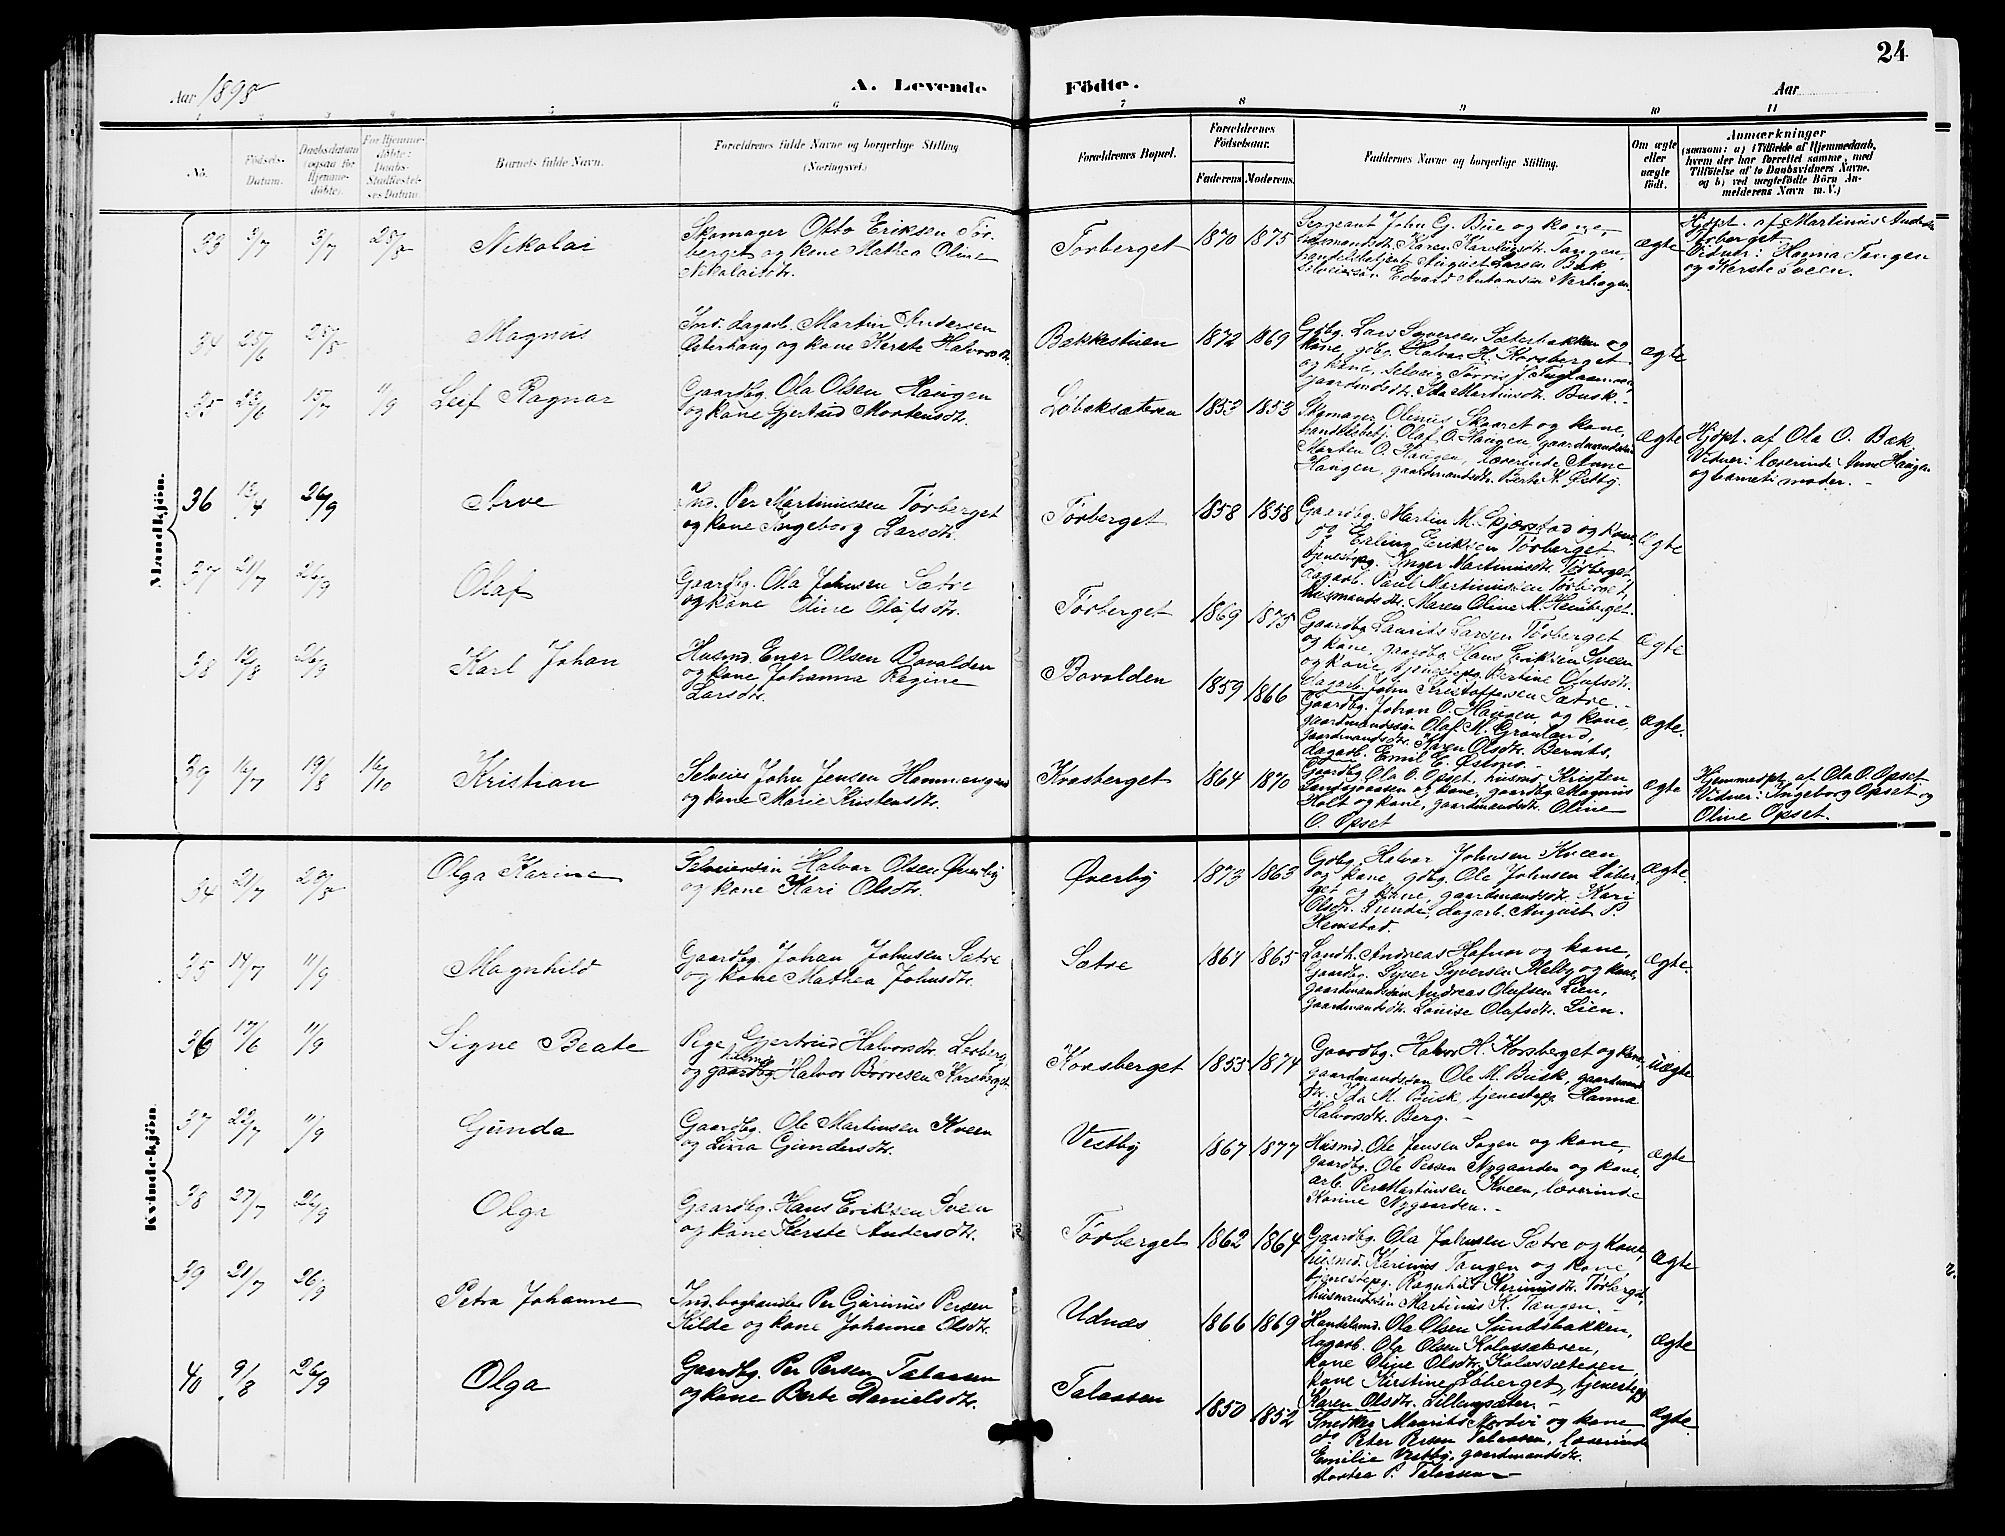 24
Aar 1895
A. Levende
Födte.
Aar
1 2 3 4 5 6 7 8 9 10 11
No.
Födsels-
Datum.
Daabsdatum
(ogsaa for
Hjemme-
döbte).
For Hjemme-
döbte:
Daabs-
Stadfæstel-
ses Datum.
Barnets fulde Navn.
Forældrenes fulde Navne og borgerlige Stilling
(Næringsvei.)
Forældrenes Bopæl.
Forældrenes
Födselsaar.
Faderens. Moderens.
Faddernes Navne og borgerlige Stilling.
Om ægte
eller
uægte
födt.
Anmærkninger
(saasom: a) i Tilfælde af Hjemmedaab,
hvem der har forrettet samme, med
Tilföielse af to Daabsvidners Navne.
og b) ved uægtefödte Börn An-
melderens Navn m. V.)
Mandkjön.
33 3/7 3/7 Nikolai
Skomager Otto Eriksen Tør-
berget og kone Mathea Oline
Nikolaisdtr.
Tørberget 1870 1875
Sergeant John G. Bue og kone,
husmandsdtr. Karen Tangen,
handelsbetjent August Larsen Bæk,
Selveiersøn Edvard Antonsen Nerhagen.
ægte
Hjdpt. af Martinus
Tørberget
Vidner: Hanna Tangen
og Kerste Sveen.
34 25/6 25/8 Magnus
Ind. dagarb. Martin Andersen
Østerhaug og kone Kerste Halvorsdtr.
Bækkestuen 1872 1869
Gdbg. Lars Syversen Sæterbakken og
kone, gdbg. Halvor H. Korsberget
og kone,
gaardmdsdtr. Ida Martinsdtr. Busk.
ægte
35 15/7 11/9 Leif Ragnar
Gaardbg. Ola Olsen Haugen
og kone Gjertrud Mortensdtr.
Løbaksæteren 1853 1853
Skomager Olenus Skaaret og kone,
handelsbetj. Olaf O. Haugen, gaardmandssøn
Morten O. Haugen, lærerinde Anne
Haugen, gaardmandsdtr. Berte K. Østby.
ægte
Hjdpt. af Ola O. Bæk
Vidner: lærerinde Anne Haugen
og barnets moder. -
36 13/4 26/9 Arve
Ind. Per Martinussen Tørberget
og kone Ingeborg Larsdtr.
Tørberget 1858 1858
Gaardbg. Martin M. Skjærstad og kone,
Erling Eriksen Tørberget
tjenestepg. Inger Martinusdtr. Tørberget,
dagarb. Paul Martinussen Tørberget,
husmandsdtr. Maren Oline M. Heimberget.
ægte
37 21/7 26/9 Olaf
Gaardbg. Ola Johnsen Sætre
og kone Oline Olafsdtr.
Tørberget 1869 1875
Gaardbg. Laurits Larsen Tørberget
og kone, gaardbg. Hans Eriksen Sveen
og kone, tjenestepg. Bertine Olafsdtr.
dagarb. John Kristoffersen Sætre. -
ægte
38 12/8 26/9 Karl Johan
Husmd. Ener Olsen Bovolden
og kone Johanna Regine
Larsdtr.
Bovolden 1859 1866
Gaardbg. Johan O. Haugen og kone,
gaardmandssøn Olaf M. Grønland,
gaardmandsdtr. Karen Olsdtr. Bernts,
dagarb. Emil E. Østmo. -
ægte.
39 16/7 19/8 16/10 Kristian
Selveier John Jensen Hammersgaard
og kone Marie Kristensdtr.
Korsberget 1864 1870
Gaardbg. Ola O. Opset, husmd. Kristen
Landsjøaasen og kone, gaardbg. Magnus
Holt og kone, gaardmandsdtr. Oline
O. Opset
ægte
Hjemmedpt. af Ola O. Opset
Vidner: Ingeborg Opset og
Oline Opset.
Kvindekjön.
34 21/7 25/8 Olga Karine
Selveiersøn Halvor Olsen Øverby
og kone Kari Olsdtr.
Øverby 1873 1863
Gdbg. Halvor Johnsen Kveen
og kone, gdbg. Ole Johnsen Løber-
get og kone, gaardmandsdtr. Kari
Olsdtr. Lunde, dagarb. August P.
Hemstad.
ægte.
35 14/7 11/9 Magnhild
Gaardbg. Johan Johnsen Sætre
og kone Mathea Johnsdtr.
Sætre 1864 1865
Landh. Andreas Hafnor og kone,
Gaardbg. Syver Syversen Melby og kone,
gaardmandssøn Andreas Olafsen Lien,
gaardmandsdtr. Louise Olafsdtr. Lien.
ægte.
36 17/6 11/9 Signe Beate
Pige Gjertrud Halvorsdtr. Løberg
og gaardbg. Halvor Borresen Korsberget
Korsberget 1855 1874
Gaardbg. Halvor H. Korsberget og kone,
gaardmandssøn Ole M. Busk, gaardmands-
dtr. Ida M. Busk, tjenestepg. Hanna
Halvorsdtr. Berg. -
uægte
37 22/7 11/9 Gunda
Gaardbg. Ole Martinsen Kveen
og Lina Gundersdtr.
Vestby 1867 1877
Husmd. Ole Jensen Sagen og kone,
gaardbg. Ole Persen Nygaarden og kone,
arb. Per Martinsen Kveen, lærerinde
Karine Nygaarden. -
ægte
38 27/7 26/9 Olga
Gaardbg. Hans Eriksen Sveen
og kone Kerste Andersdtr.
Tørberget 1862 1864
Gaardbg. Ola Johnsen Sætre og kone,
husmd. Karinus Tangen og kone,
tjenestepg. Ragnhild Karinusdtr. Tørberget,
husmandssøn Martinus K. Tangen. -
ægte
39 21/7 26/9 Petra Johanne
Ind. boghandler Per Gurinius Persen
Kilde og kone Johanne Olsdtr.
Udnæs 1866 1869
Handelsmd. Ola Olsen Sundsbakken,
dagarb. Ola Olsen Kolossæteren,
kone Oline Olsdtr. Kolossæteren
kone Kirstine Løberget, tjenestepg.
Karen Olsdtr. Lillemosæter. -
ægte
40 9/8 26/9 Olga
Gaardbg. Per Persen Talaasen
og kone Berte Danielsdtr.
Talaasen 1850 1852
Snedker Maurits Nordvi og kone
do Peter Persen Talaasen, lærerinde
Emilie Vestby, gaardmandsdtr.
Mortea P. Talaasen -
ægte.